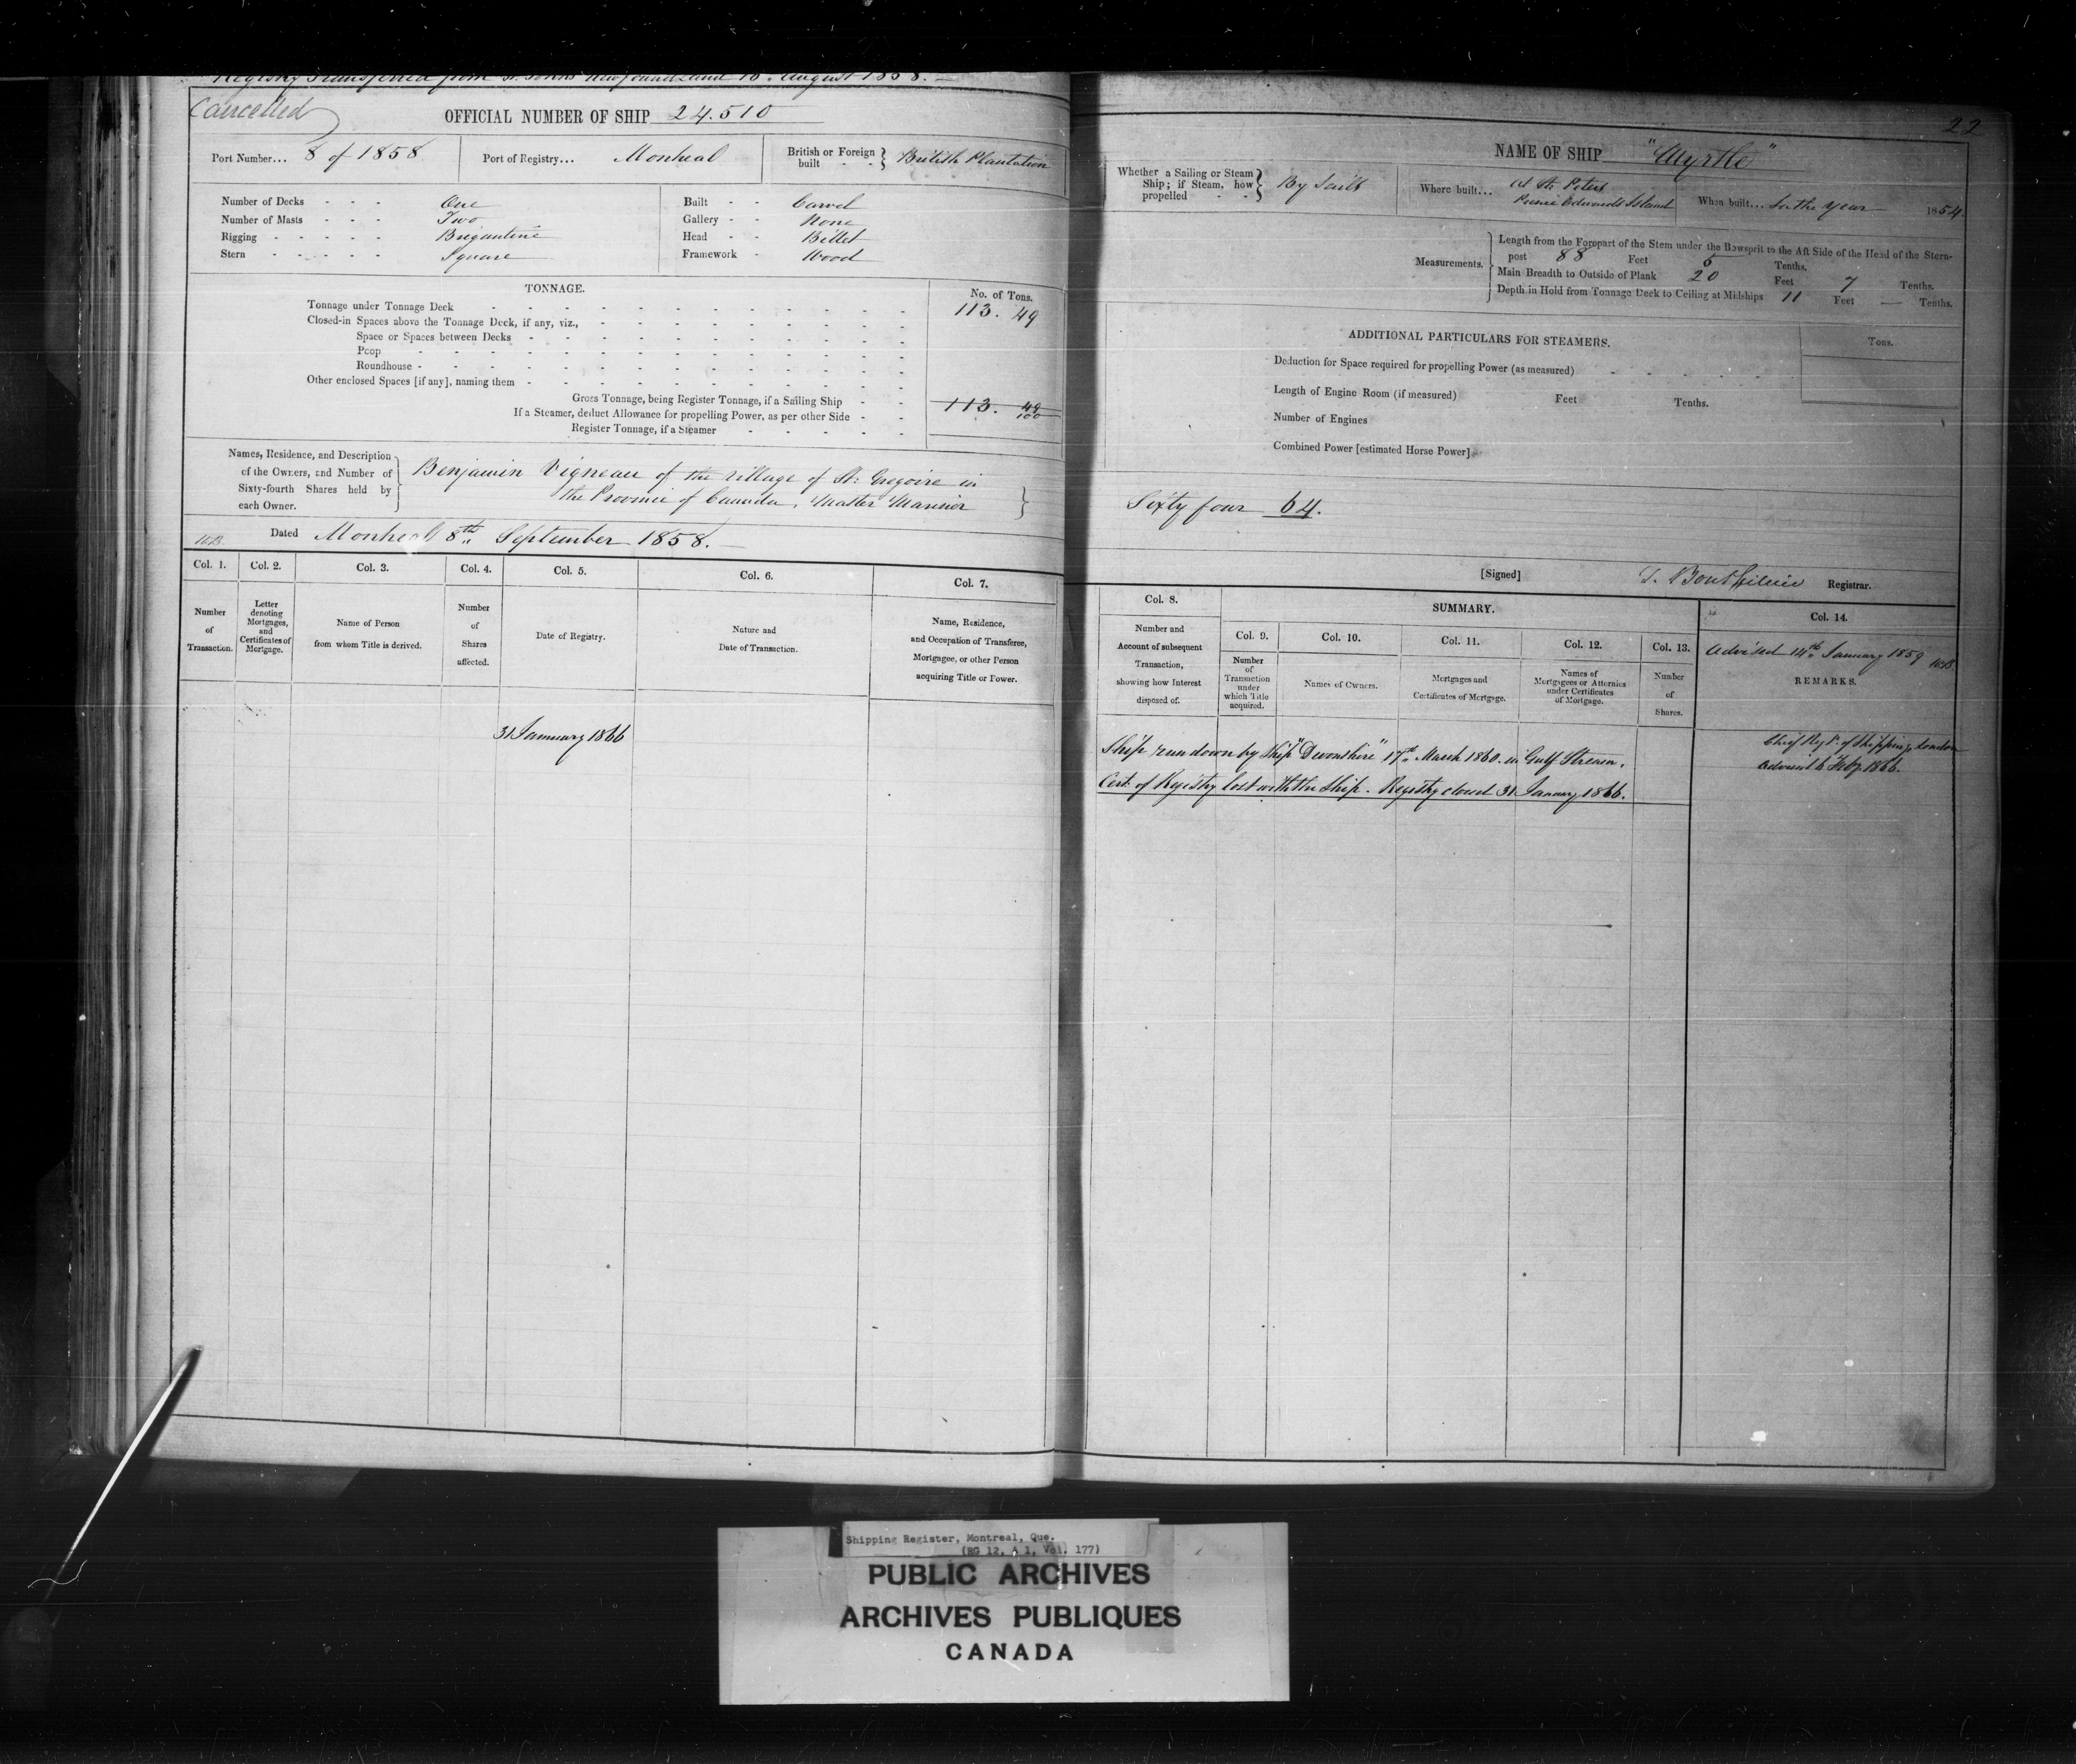 Registry Transferred from St. Johns Newfoundland 18. August 1858.
Cancelled
OFFICIAL NUMBER OF SHIP 24.510
Port Number... 8 of 1858 Port of Registry... Montreal British or Foreign built - - } British Plantation
Number of Decks - - - One Built - - Carvel
Number of Masts - - - Two Gallery - - None
Rigging - - - - - Brigantine Head - - Billet
Stern - - - - - Square Framework - Wood
TONNAGE.
No. of Tons.
Tonnage under Tonnage Deck 113. 49
Closed-in Spaces above the Tonnage Deck, if any, viz.,
Space or Spaces between Decks
Poop
Roundhouse
Other enclosed Spaces [if any], naming them
Gross Tonnage, being Register Tonnage, if a Sailing Ship - - 113. 49/100
If a Steamer, deduct Allowance for propelling Power, as per other Side - -
Register Tonnage, if a Steamer
Names, Residence, and Description
of the Owners, and Number of
Sixty-fourth Shares held by
each Owner.
Benjamin Vigneau of the Village of St. Gregoire in
the Province of Canada, Master Mariner
Dated Montreal 8th September 1858.
Col. 1. Col. 2. Col. 3. Col. 4. Col. 5. Col. 6. Col. 7.
Number
of
Transaction.
Letter
denoting
Mortgages,
and
Certificates of
Mortgage.
Name of Person
from whom Title is derived.
Number
of
Shares
affected.
Date of Registry.
Nature and
Date of Transaction.
Name, Residence,
and Occupation of Transferee,
Mortgagee, or other Person
acquiring Title or Power.
31 January 1866
22
NAME OF SHIP "Myrtle"
Whether a Sailing or Steam
Ship; if Steam, how
propelled - - } By Sails
Where built... At St. Peters
Prince Edwards Island
When built... In the Year 1854
Measurements.
Length from the Forepart of the Stem under the Bowsprit to the Aft Side of the Head of the Stern-
post 88 Feet 5 Tenths.
Main Breadth to Outside of Plank 20 Feet 7 Tenths.
Depth in Hold from Tonnage Deck to Ceiling at Midships 11 Feet — Tenths.
ADDITIONAL PARTICULARS FOR STEAMERS.
Tons.
Deduction for Space required for propelling Power (as measured)
Length of Engine Room (if measured) Feet Tenths.
Number of Engines
Combined Power [estimated Horse Power]
Sixty four 64.
[Signed] Registrar.
Col. 8.
Number and
Account of subsequent
Transaction,
showing how Interest
disposed of.
SUMMARY.
Col. 9. Col. 10. Col. 11. Col. 12. Col. 13.
Number
of
Transaction
under
which Title
acquired.
Names of Owners.
Mortgages and
Certificates of Mortgage.
Names of
Mortgagees or Attornies
under Certificates
of Mortgage.
Number
of
Shares.
Col. 14.
Advised 14th January 1859
REMARKS.
Ship run down by Ship "Devonshire" 17th March 1860. in Gulf Stream.
Cert. of Registry lost with the Ship. Registry closed 31 January 1866.
Chief Regr. of Shipping, London
advised 6 Feby 1866.
Shipping Register, Montreal, Que.
(RG 12, A 1, Vol. 177)
PUBLIC ARCHIVES
ARCHIVES PUBLIQUES
CANADA